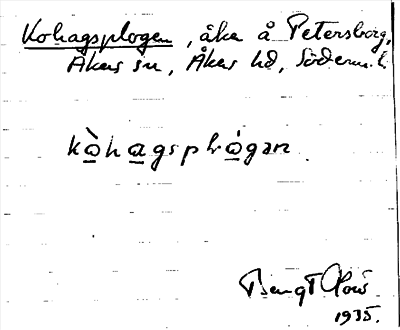 Kohagsplogen, åker å Petersborg,
Åkers sn, Åkers hd, Söderm. l.
kòhagsplógan.
Bengt
1935.